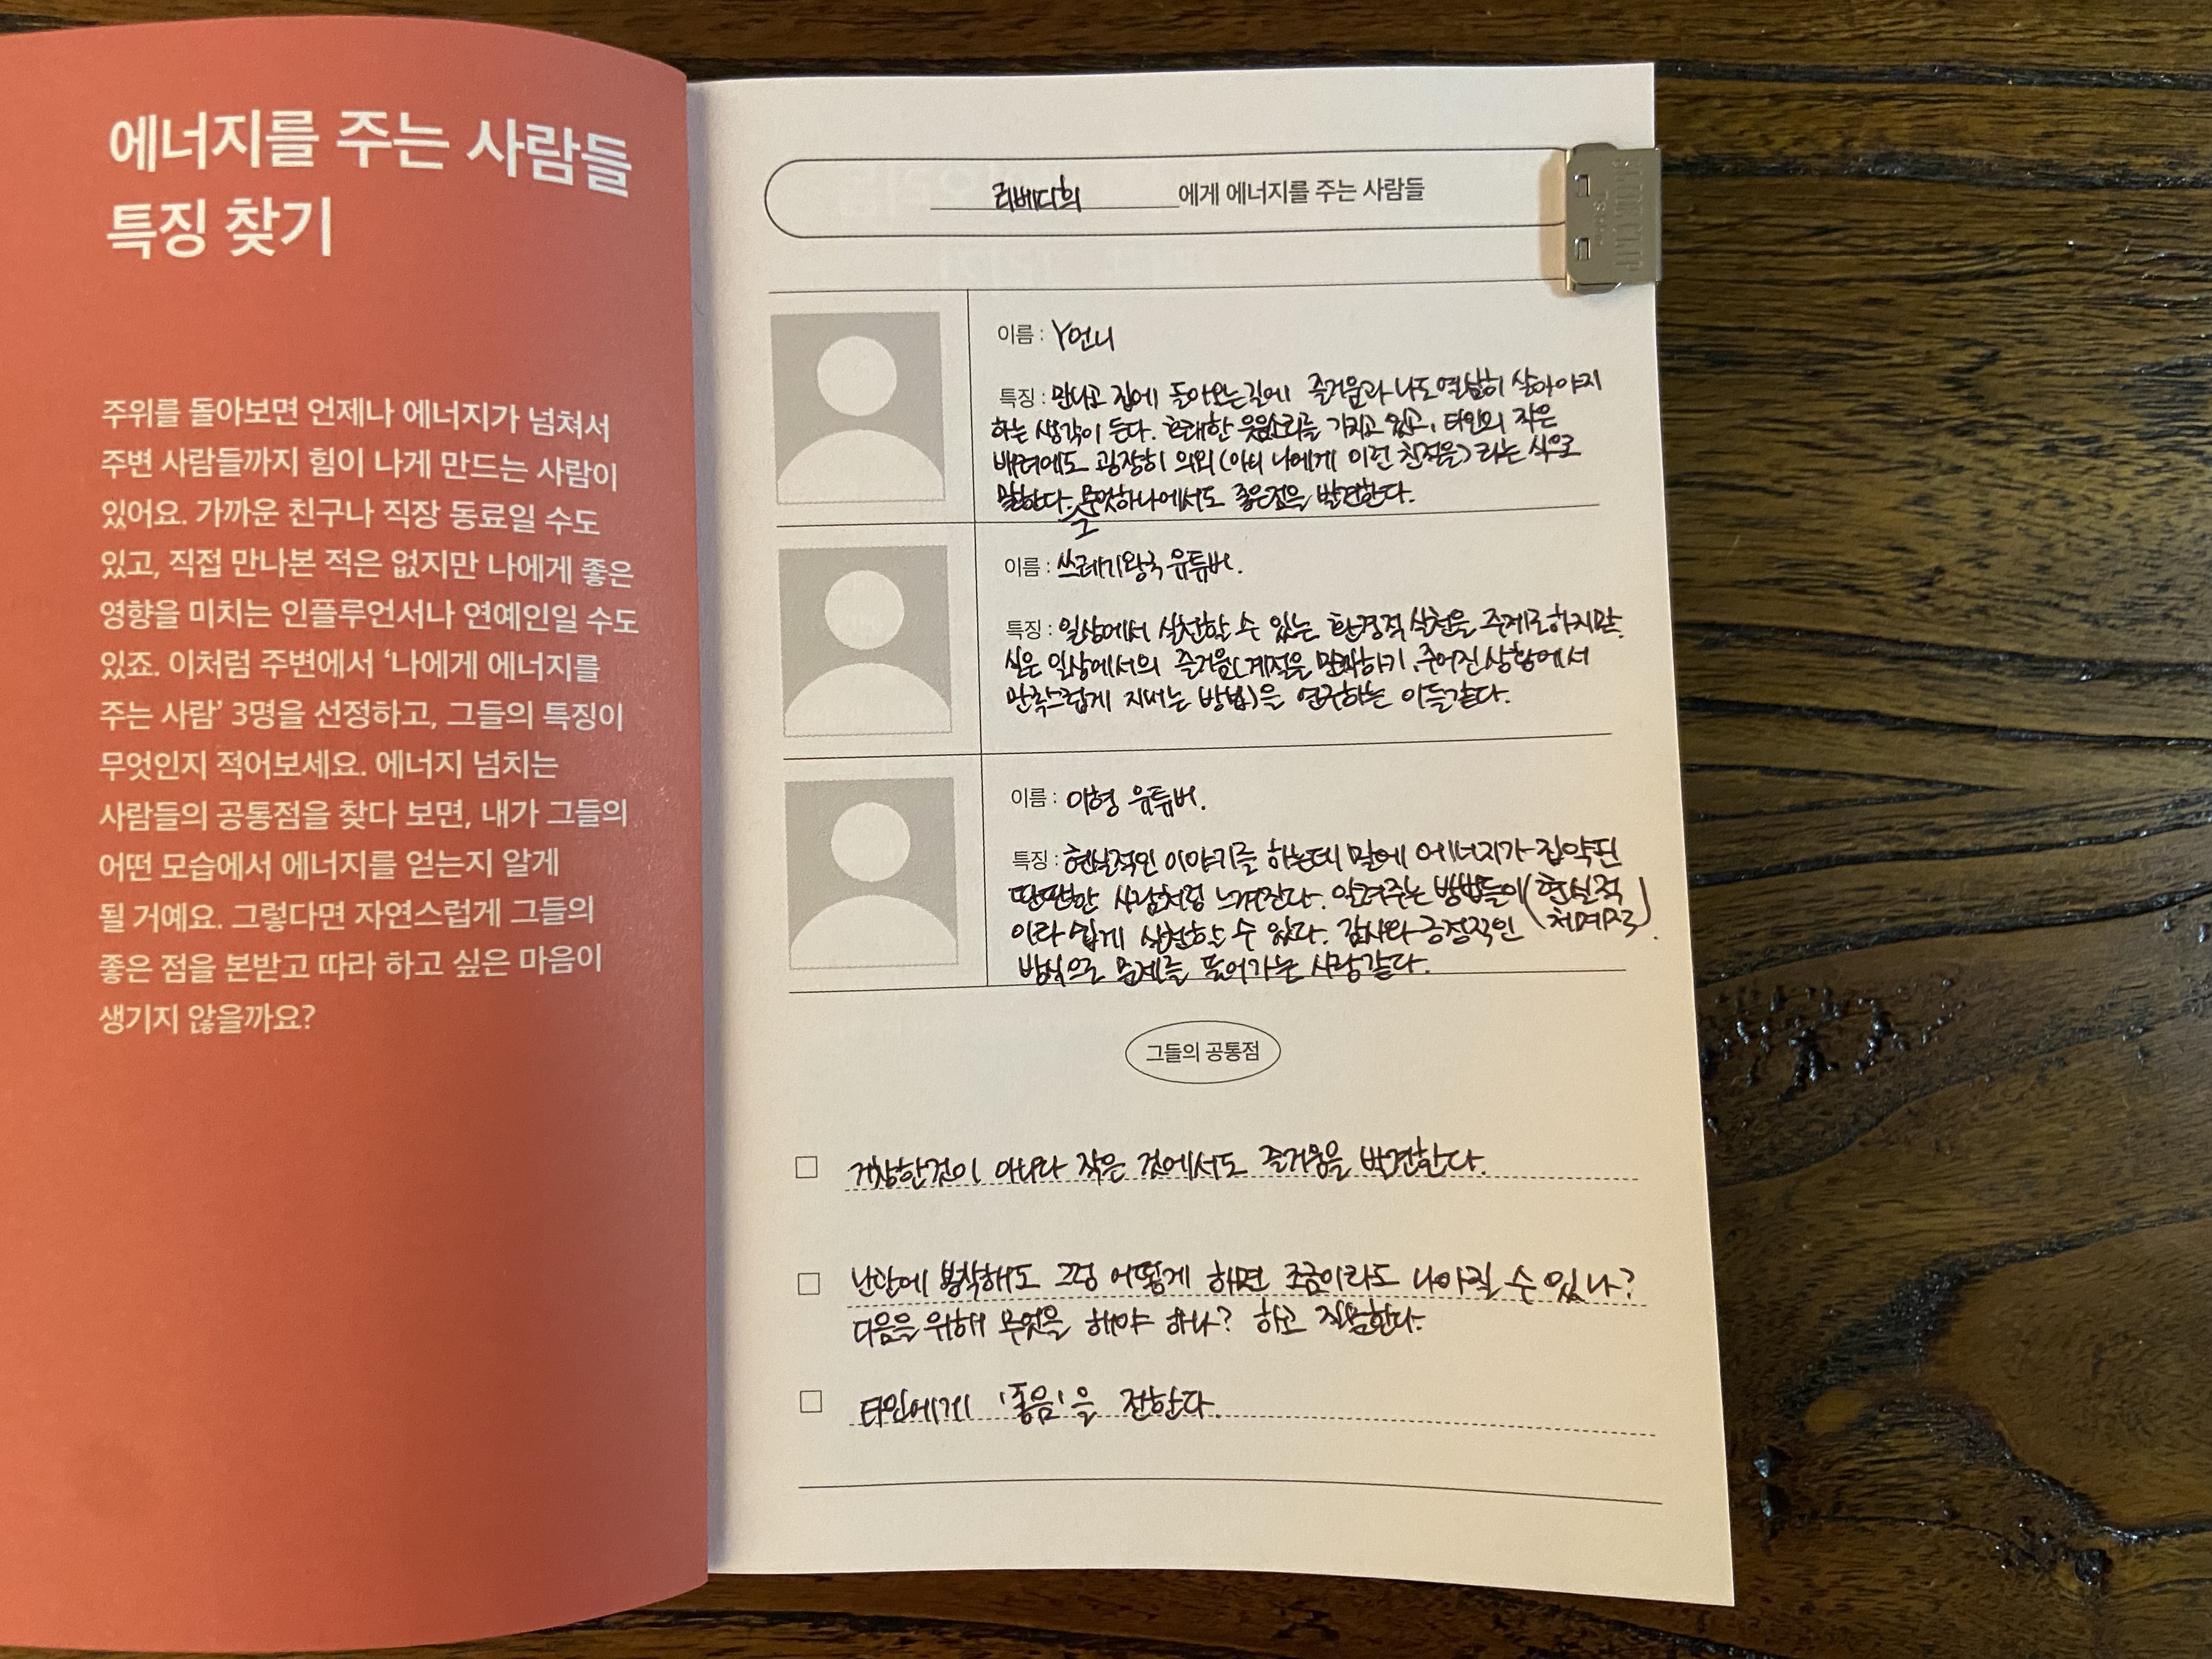 에너지를 주는 사람들
특징 찾기
주위를 돌아보면 언제나 에너지가 넘쳐서
주변 사람들까지 힘이 나게 만드는 사람이
있어요. 가까운 친구나 직장 동료일 수도
있고, 직접 만나본 적은 없지만 나에게 좋은
영향을 미치는 인플루언서나 연예인일 수도
있죠. 이처럼 주변에서 ‘나에게 에너지를
주는 사람’ 3명을 선정하고, 그들의 특징이
무엇인지 적어보세요. 에너지 넘치는
사람들의 공통점을 찾다 보면, 내가 그들의
어떤 모습에서 에너지를 얻는지 알게
될 거예요. 그렇다면 자연스럽게 그들의
좋은 점을 본받고 따라 하고 싶은 마음이
생기지 않을까요?
리베디의 에게 에너지를 주는 사람들
이름 : Y언니
특징 : 만나고 집에 돌아오는길에 즐거움과 나도 열심히 살아야지
하는 생각이 든다. 호쾌한 웃음소리를 가지고 있고, 타인의 작은
배려에도 굉장히 의외(아니 나에게 이런 친절을) 라는 식으로
말한다. 그 무엇하나에서도 좋은점을 발견한다.
이름 : 쓰레기왕국 유튜버.
특징 : 일상에서 실천할 수 있는 환경적 실천을 주제로하지만,
실은 일상에서의 즐거움(계절을 만끽하기, 주어진 상황에서
만족스럽게 지내는 방법)을 연구하는 이들같다.
이름 : 이형 유튜버.
특징 : 현실적인 이야기를 하는데 말에 에너지가 집약된
딴딴한 사람처럼 느껴진다. 알려주는 방법들이 (현실적
이라 쉽게 실천할 수 있다. 감사와 긍정적인
방식으로 문제를 풀어가는 사람같다.
그들의 공통점
거창한것이 아니라 작은 것에서도 즐거움을 발견한다.
난관에 봉착해도 그럼 어떻게 하면 조금이라도 나아질 수 있나?
다음을 위해 무엇을 해야 하나? 하고 질문한다.
타인에게 '좋음'을 전한다.